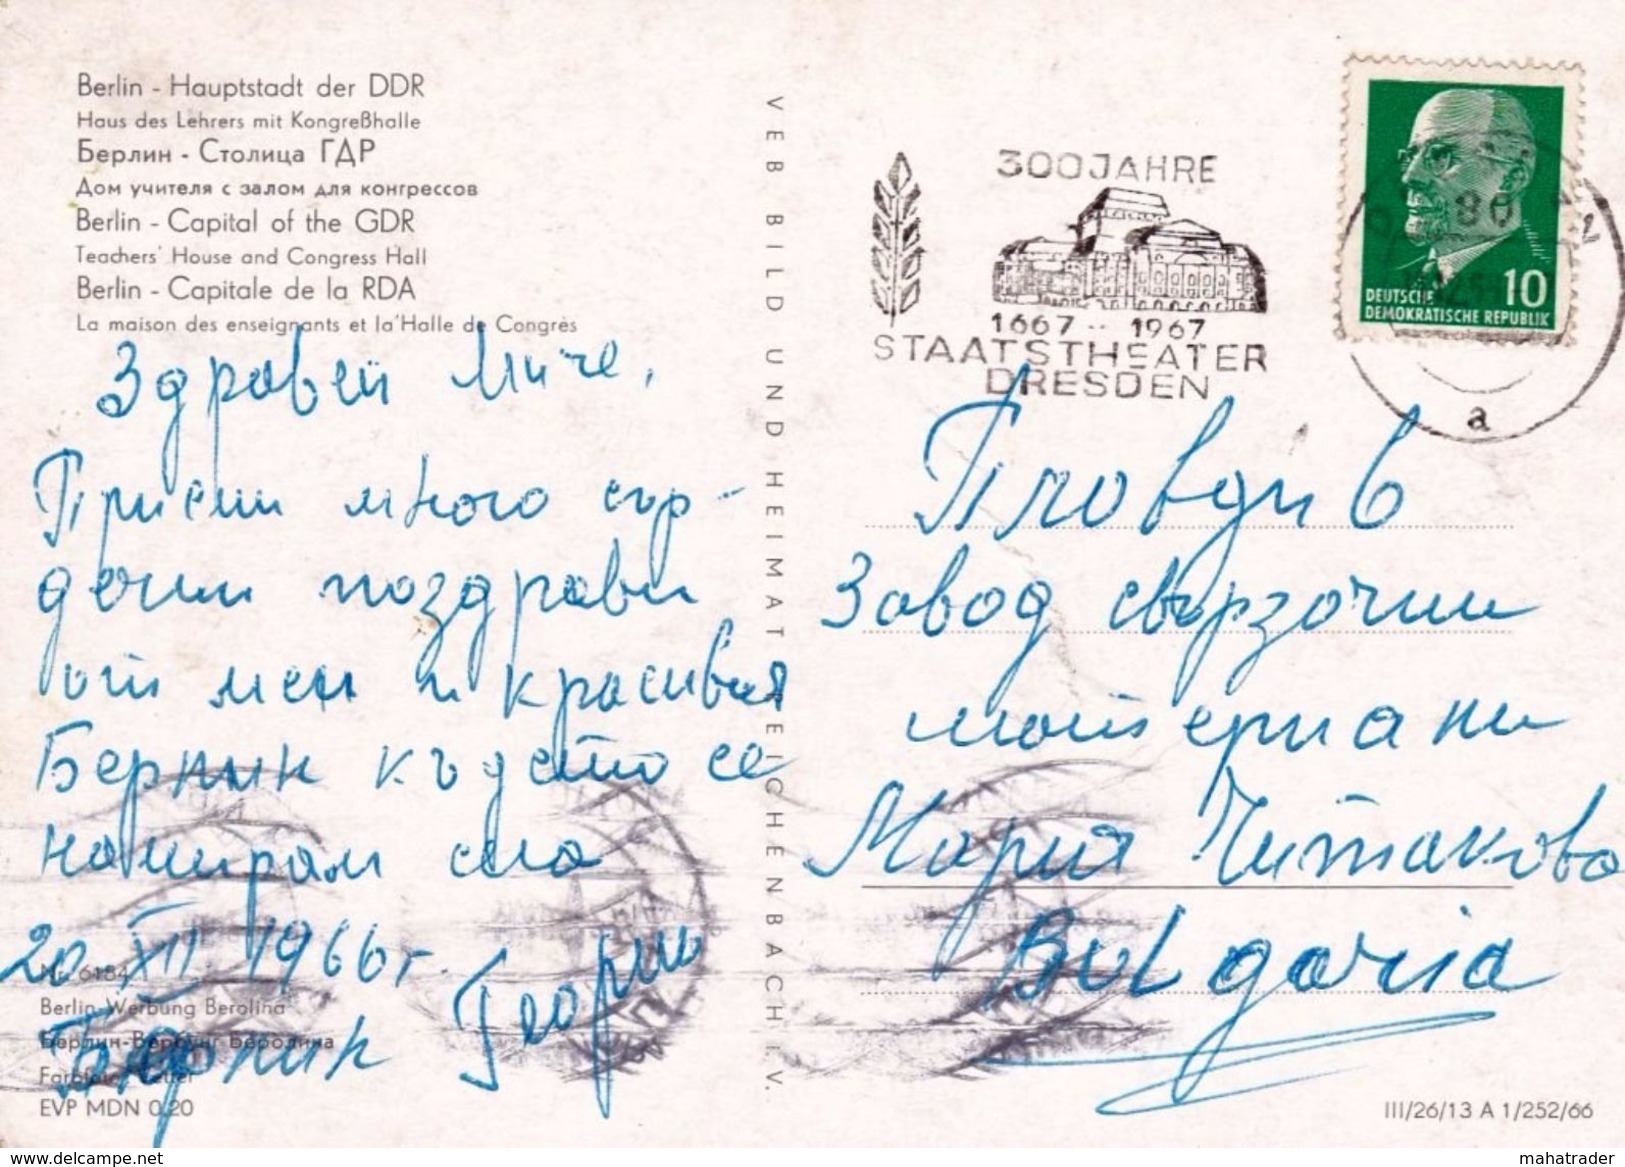 Berlin - Hauptstadt der DDR
Haus des Lehrers mit Kongreßhalle
Берлин - Столица ГДР
Дом учителя с залом для конгрессов
Berlin - Capital of the GDR
Teachers' House and Congress Hall
Berlin - Capitale de la RDA
La maison des enseignants et la'Halle de Congrès
Здравей Миче,
Приеми много сър-
дечни поздрави
от мен и красивия
Берлин където се
намирам сега
20 XII 1966 г.
Берлин Георги
Nr. 6184
Berlin-Werbung Berolina
Берлин-Вербунг Беролина
EVP MDN 0,20
VEB BILD UND HEIMAT REICHENBACH I. V.
300 JAHRE
1667 .. 1967
STAATSTHEATER
DRESDEN
80
a
10
DEUTSCHE
DEMOKRATISCHE REPUBLIK
Пловдив
Завод свързочни
материали
Мария Читакова
Bulgaria
III/26/13 A 1/252/66
www.delcampe.net
mahatrader